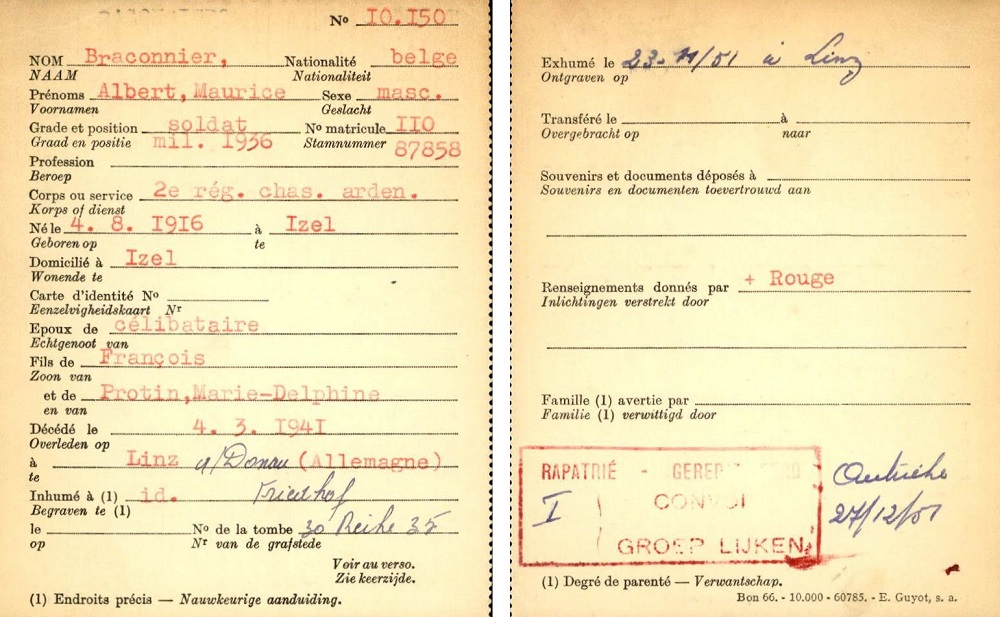 No 10.150
NOM Braconnier, Nationalité belge
NAAM Nationaliteit
Prénoms Albert,Maurice Sexe masc.
Voornamen Geslacht
Grade et position soldat No matricule IIO
Graad en positie mil. 1936 Stamnummer 87858
Profession
Beroep
Corps ou service 2e rég. chas. arden.
Korps of dienst
Né le 4. 8. I9I6 à Izel
Geboren op te
Domicilié à Izel
Wonende te
Carte d'identité No
Eenzelvigheidskaart Nr
Epoux de célibataire
Echtgenoot van
Fils de François
Zoon van
et de Protin,Marie-Delphine
en van
Décédé le 4. 3. I94I
Overleden op
à Linz a/Donau (Allemagne)
te
Inhumé à (1) id. Friedhof
Begraven te (1)
le No de la tombe 30 Reihe 35
op Nr van de grafstede
Voir au verso.
Zie keerzijde.
(1) Endroits précis — Nauwkeurige aanduiding.
Exhumé le 23-11/51 à Linz
Ontgraven op
Transféré le à
Overgebracht op naar
Souvenirs et documents déposés à
Souvenirs en documenten toevertrouwd aan
Renseignements donnés par + Rouge
Inlichtingen verstrekt door
Famille (1) avertie par
Familie (1) verwittigd door
RAPATRIÉ - Autriche
I CONVOI 27/12/51
GROEP LIJKEN
(1) Degré de parenté — Verwantschap.
Bon 66. - 10.000 - 60785. - E. Guyot, s. a.